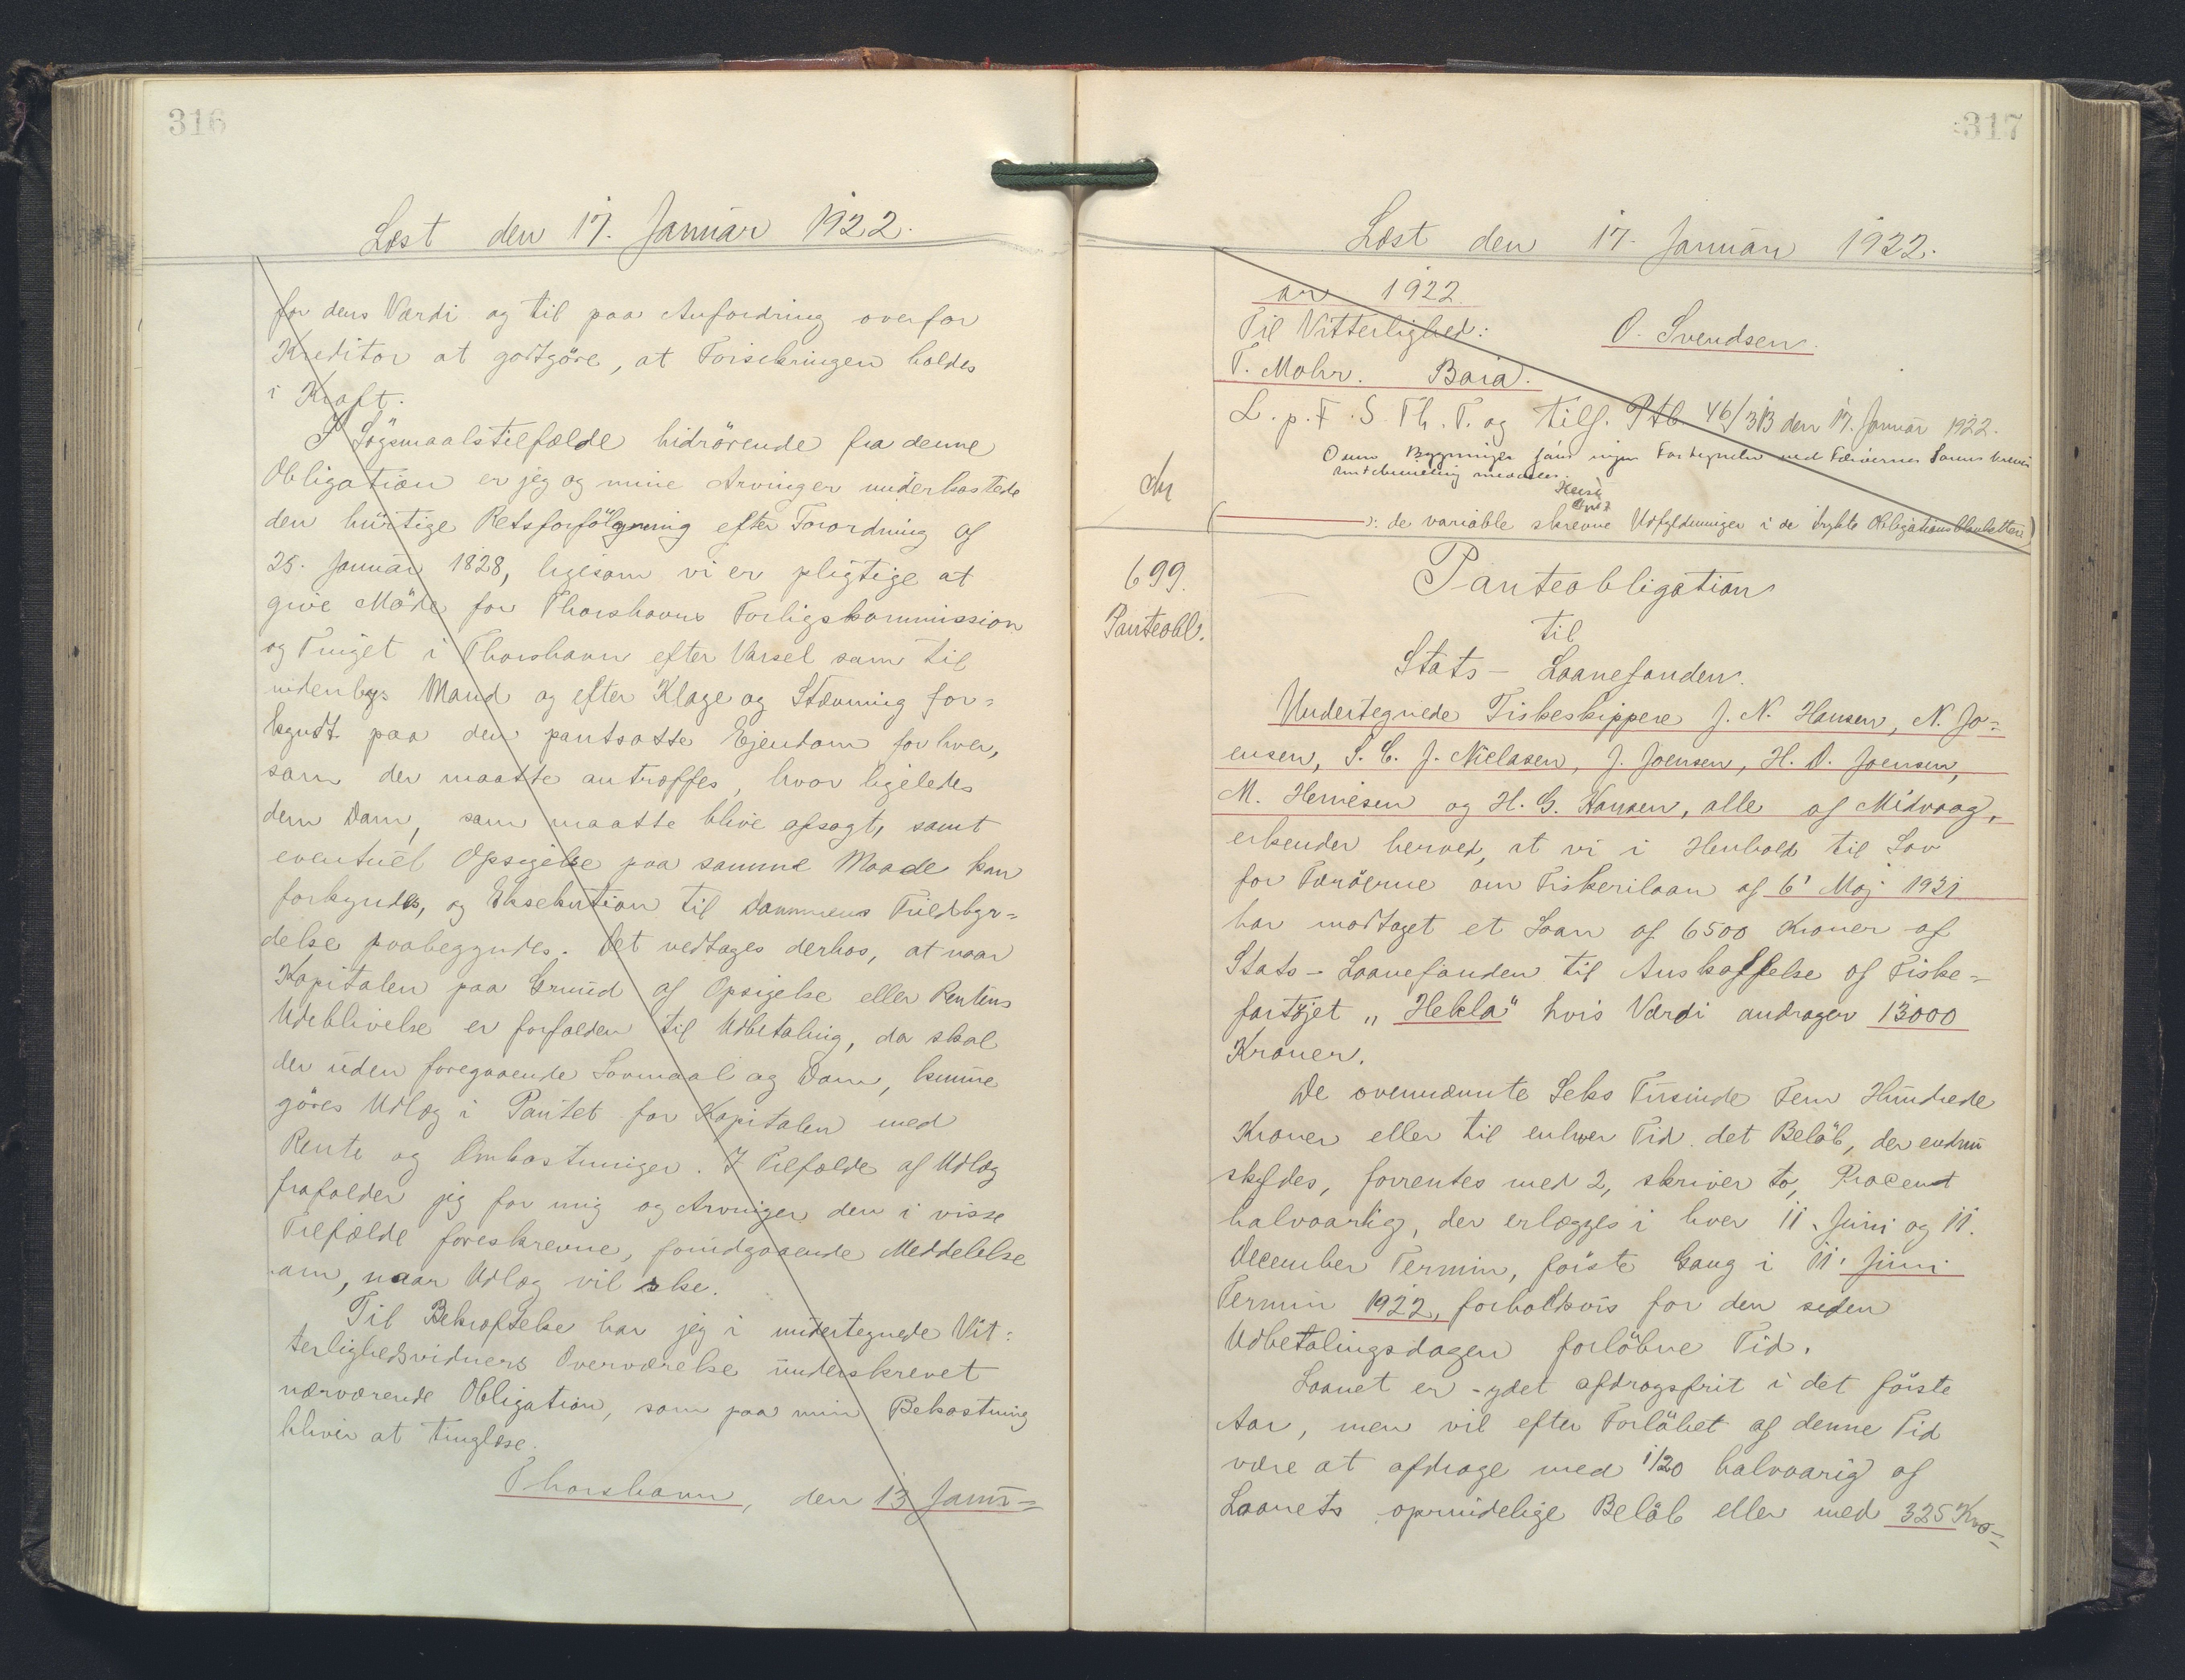 316
Læst den 17. Januar 1922.
for dens Værdi og til paa Anfordring overfor
Kreditor at godtgöre, at Forsikringen holdes
i Kraft.
I Sögsmaalstilfælde hidrörende fra denne
Obligation er jeg og mine Arvinger underkastede
den hurtige Retsforfölgning efter Forordning af
25. Januar 1828, ligesom vi er pligtige at
give Möde for Thorshavns Forligskommission
og Tinget i Thorshavn efter Varsel som til
indenbys Mand og efter Klage og Stævning for=
kyndt paa den pantsatte Ejendom for hver,
som der maatte antræffes, hvor ligeledes
den Dom, som maatte blive afsagt, samt
eventuel Opsigelse paa samme Maade kan
forkyndes, og Eksekution til Dommens Fuldbyr=
delse paabegyndes. Det vedtages derhos, at naar
Kapitalen paa Grund af Opsigelse eller Rentens
Udeblivelse er forfalden til Udbetaling, da skal
der uden foregaaende Lovmaal og Dom, kunne
göres Udlæg i Pantet for Kapitalen med
Rente og Omkostninger. I Tilfælde af Udlæg
frafalder jeg for mig og Arvinger den i visse
Tilfælde foreskrevne, forudgaaende Meddelelse
om, naar Udlæg vil ske.
Til Bekræftelse har jeg i undertegnede Vit=
terlighedsvidners Overværelse underskrevet
nærværende Obligation, som paa min Bekostning
bliver at tinglæse.
Thorshavn, den 13 Janu=
317
Læst den 17. Januar 1922.
ar 1922.
Til Vitterlighed: O. Svendsen.
T. Mohr. Baia.
L. p. F. S. Th. T. og tilf. Ptb. 46/313 den 17. Januar 1922.
(———): de variable skrevne Udfyldninger i de trykte Obligationsblanketter)
699.
Panteobl.
Panteobligation
til
Stats - Laanefonden.
Undertegnede Fiskeskippere J. N. Hansen, N. Jo=
ensen, S. C. J. Nielasen, J. Joensen, H. D. Joensen,
M. Heinesen og H. G. Hansen, alle af Midvaag,
erkender herved, at vi i Henhold til Lov
for Færöerne om Fiskerilaan af 6' Maj 1921
har modtaget et Laan af 6500 Kroner af
Stats - Laanefonden til Anskaffelse af Fiske=
fartöjet „Hekla" hvis Værdi andrager 13000
Kroner.
De ovennævnte Seks Tusinde Fem Hundrede
Kroner eller til enhver Tid det Belöb, der endnu
skyldes, forrentes med 2, skriver to, Procent
halvaarlig, der erlægges i hver 11. Juni og 11.
December Termin, förste Gang i 11. Juni
Termin 1922, forholdsvis for den siden
Udbetalingsdagen forlöbne Tid.
Laanet er ydet afdragsfrit i det förste
Aar, men vil efter Forlöbet af denne Tid
være at afdrage med 1/20 halvaarig af
Laanets oprindelige Belöb eller med 325 Kro=